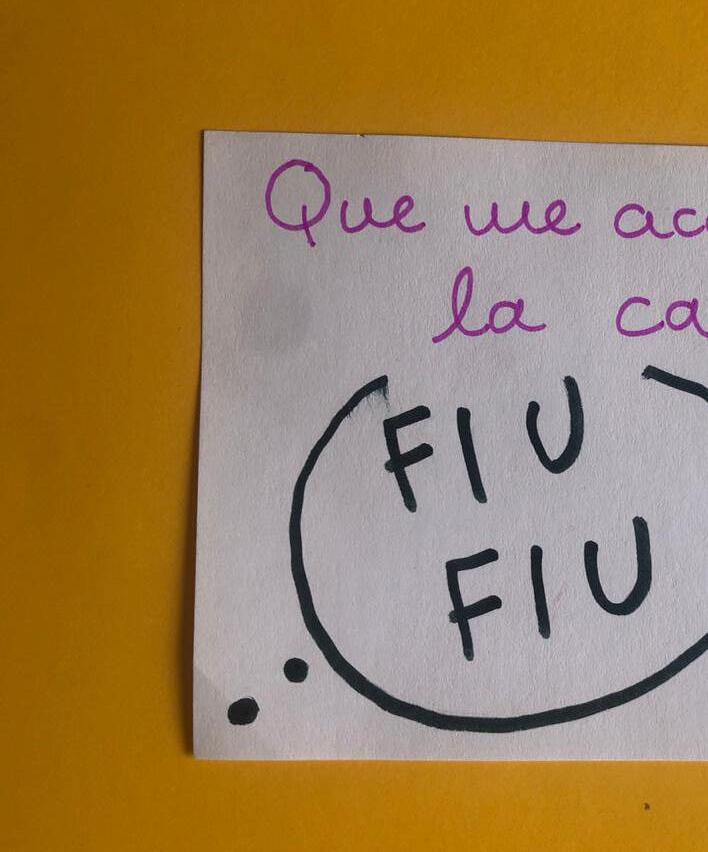 Que me ac
la ca
FIU
FIU